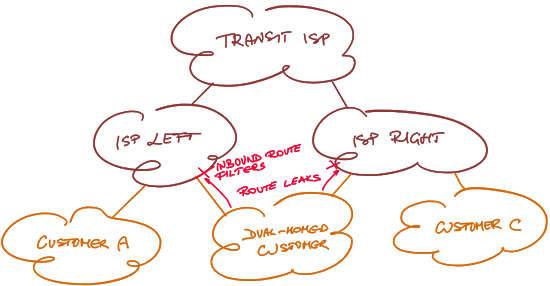 TRANSIT ISP
ISP LEFT
ISP RIGHT
INBOUND ROUTE
FILTERS
ROUTE LEAKS
CUSTOMER A
DUAL-HOMED
CUSTOMER
CUSTOMER C